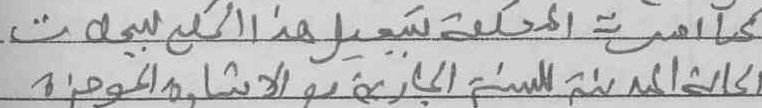 كما أمرت المحكمة بتسجيل هذا الحكم بسجلات
الحالة المدنية للسنة الجارية مع الإشارة الموجزة